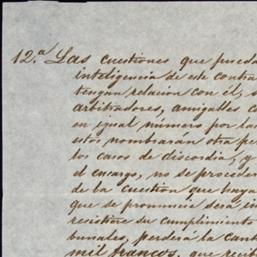 12.ª Las cuestiones que pueda
inteligencia de este contra
tengan relacion con él, s
arbitradores, amigables c
en igual número por las
estos nombrarán otra pe
los casos de discordia, y
el encargo, no se proceder
de la cuestion que haya
que se pronuncie será in
resistiere su cumplimiento
bunales, perderá la cant
mil francos, que recib